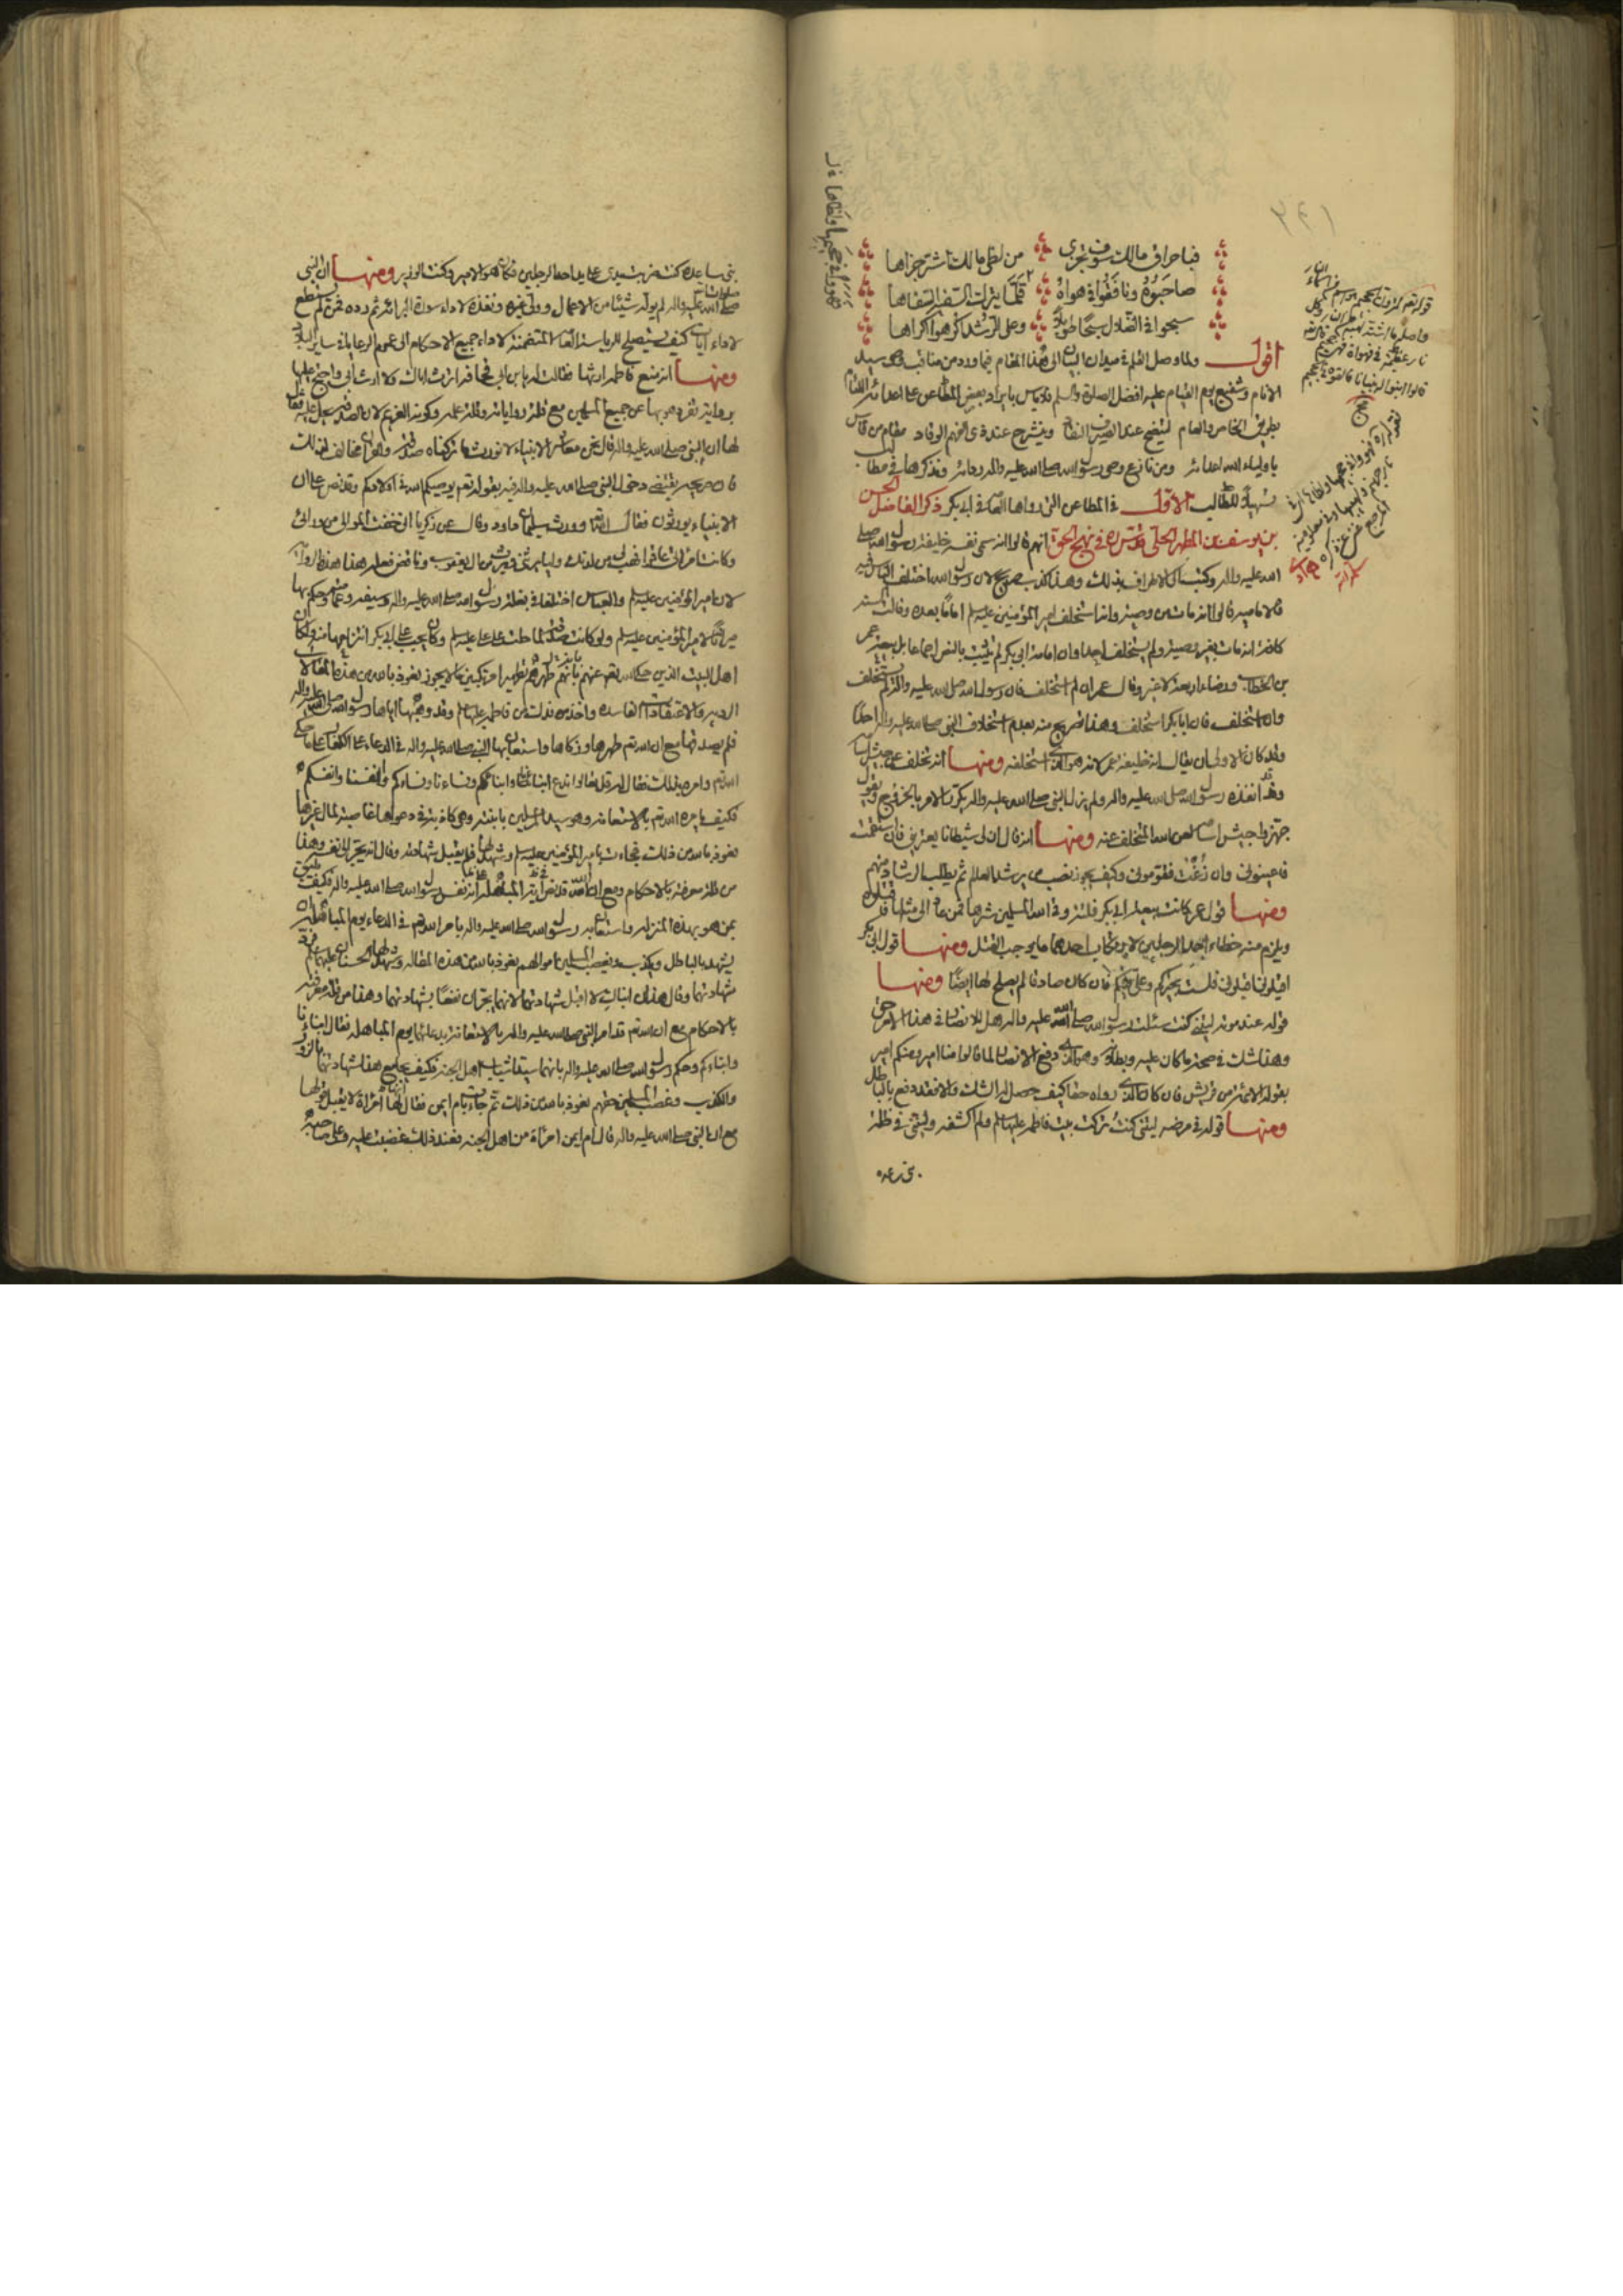 فيا حراق مالك سوف تجزى من لظى مالك اشر جزاها
صاحبوه ونافقوا في هواه
سبحوا في الضلال سبحا طويلا وعلى الرشد اكرهوا اكراها
اقول ولما وصل القلم في ميدان البيان الى هذا المقام فيما ورد من مناقب سيد
الانام وشفيع يوم القيام عليه افضل الصلوة والسلم فلا باس بايراد بعض المطاعن على اعدائه اللئام
بطريق الخاص والعام ليتضح عند البصير النقاد وينشرح عند ذي الفهم الوقاد مقام من قاس
باولياء الله اعدائه ومن نازع وصي رسول الله صلى الله عليه واله ورد ونذكرها في مطالب
تسهيلا للطالب الاول في المطاعن التي رواها العامة في ابي بكر ذكر الفاضل الحسن
بن يوسف بن المطهر الحلي قدس سره في نهج الحق انهم قالوا انه سمى نفسه خليفة رسول الله صلى
الله عليه واله وكتب الى الاطراف بذلك وهذا كذب صريح لان رسول الله اختلف الناس فيه
فالامامية قالوا انه مات عن وصية وانه استخلف امير المؤمنين عليه سلم اماما بعده وقالت السنة
كافة انه مات بغير وصية ولم يستخلف احدا وان امامة ابي بكر لم تثبت بالنص اجماعا بل ببيعة عمر
بن الخطاب ورضاء اربعة لا غير وقال عمر ان لم استخلف فان رسول الله صلى الله عليه واله لم يستخلف
وان استخلف فان ابا بكر استخلف وهذا تصريح منه بعدم استخلاف النبي صلى الله عليه واله احدا
وقد كان الاولى ان يقال انه خليفة عمر لانه هو الذي استخلفه ومنها انه تخلف عن جيش اسامة
وقد انفذه رسول الله صلى الله عليه واله ولم يزل النبي صلى الله عليه واله يكرر الامر بالخروج ويقول
جهزوا جيش اسامة لعن الله المتخلف عنه ومنها انه قال ان لي شيطانا يعتريني فان استقمت
فاعينوني وان زغت فقوموني وكيف يجوز نصب من يرشد العالم ثم يطلب الرشاد منهم
ومنها قول عمر كانت بيعة ابي بكر فلتة وقى الله المسلمين شرها فمن عاد الى مثلها فاقتلوه
ويلزم منه خطاء احد الرجلين لارتكاب احدهما ما يوجب القتل ومنها قول ابي بكر
اقيلوني اقيلوني فلست بخيركم وعلي فيكم فان كان صادقا لم يصلح لها ايضا ومنها
قوله عند موته ليتني كنت سئلت رسول الله صلى الله عليه واله هل للانصار في هذا الامر حق
وهذا شك في صحة ما كان عليه وبطلانه وهو الذي دفع الانصار لما قالوا منا امير ومنكم امير
بقوله الائمة من قريش فان كان الذي رواه حقا كيف حصل له الشك والا فقد دفع بالباطل
ومنها قوله في مرضه ليتني كنت تركت بيت فاطمة عليها سلم ولم اكشفه وليتني في ظلة
بني ساعدة كنت ضربت يدي على يد احد الرجلين فكان هو الامير وكنت الوزير ومنها ان النبي
صلى الله عليه واله لم يوله شيئا من الاعمال وولى غيره وانفذه لاداء سورة البرائة ثم رده فمن لم يستطع
لاداء آيات كيف يستصلح للرياسة العامة المتضمنة لاداء جميع الاحكام الى عموم الرعايا في سائر البلاد
ومنها انه منع فاطمة ارثها فقالت له يا بن ابي قحافة اترث اباك ولا ارث ابي واحتج عليها
برواية تفرد هو بها عن جميع المسلمين مع قلة رواياته وقلة علمه وكونه الغريم لان الصدقة تحل عليه فقال
لها ان النبي صلى الله عليه واله قال نحن معاشر الانبياء لا نورث ما تركناه صدقة والقران مخالف لذلك
فان صريحه يقتضي دخول النبي صلى الله عليه واله فيه بقوله تعم يوصيكم الله في اولادكم وقد نص على ان
الانبياء يورثون فقال الله تعم وورث سليمان داود وقال عن زكريا اني خفت الموالي من ورائي
وكانت امرأتي عاقرا فهب لي من لدنك وليا يرثني ويرث من ال يعقوب وناقض فعله هذا هذه الرواية
لان امير المؤمنين عليه سلم والعباس اختلفا في بغلة رسول الله صلى الله عليه واله وسيفه وعمامته وحكم بها
ميراثا لامير المؤمنين عليه سلم ولو كانت صدقة لما حلت على علي عليه سلم وكان يجب على ابي بكر انتزاعها منه ولكان
اهل البيت الذين حكى الله تعم عنهم بانه طهرهم تطهيرا مرتكبين ما لا يجوز نعوذ بالله من هذه المقالات
الردية والاعتقادات الفاسدة واخذ فدك من فاطمة عليها سلم وقد وهبها اياها رسول الله صلى الله عليه واله
فلم يصدقها مع ان الله تعم طهرها وزكاها واستعان بها النبي صلى الله عليه واله في الدعاء على الكفار على ما حكى
الله تعم وامره بذلك فقال له قل تعالوا ندع ابنائنا وابنائكم ونسائنا ونسائكم وانفسنا وانفسكم
فكيف يامره الله تعم بالاستعانة وهو سيد المرسلين بابنته وهي كاذبة في دعواها غاصبة لمال غيرها
نعوذ بالله من ذلك فجاءت بامير المؤمنين عليه سلم وشهد لها فلم يقبل شهادته وقال انه يجر الى نفسه وهذا
من قلة معرفته بالاحكام ومع ان الله تعم قد نص في اية المباهلة انه نفس رسول الله صلى الله عليه واله فكيف يليق
بمن هو بهذه المنزلة واستعان به رسول الله صلى الله عليه واله بامر الله تعم في الدعاء يوم المباهلة ان
يشهد بالباطل ويكذب ويغصب المسلمين اموالهم نعوذ بالله من هذه المقالة وشهد لها الحسنان عليهما سلم فرد
شهادتهما وقال هذان ابناك لا اقبل شهادتهما لانهما يجران نفعا بشهادتهما وهذا من قلة معرفته
بالاحكام مع ان الله تعم قد امر النبي صلى الله عليه واله بالاستعانة بدعائهما يوم المباهلة فقال ابنائنا
وابنائكم وحكم رسول الله صلى الله عليه واله بانهما سيدا شباب اهل الجنة فكيف يجامع هذا شهادتهما بالزور
والكذب وغصب المسلمين حقهم نعوذ بالله من ذلك ثم جائت بام ايمن فقال لها انها امرأة لا يقبل قولها
مع ان النبي صلى الله عليه واله قال ام ايمن امرأة من اهل الجنة فعند ذلك غضبت عليه وعلى صاحبه